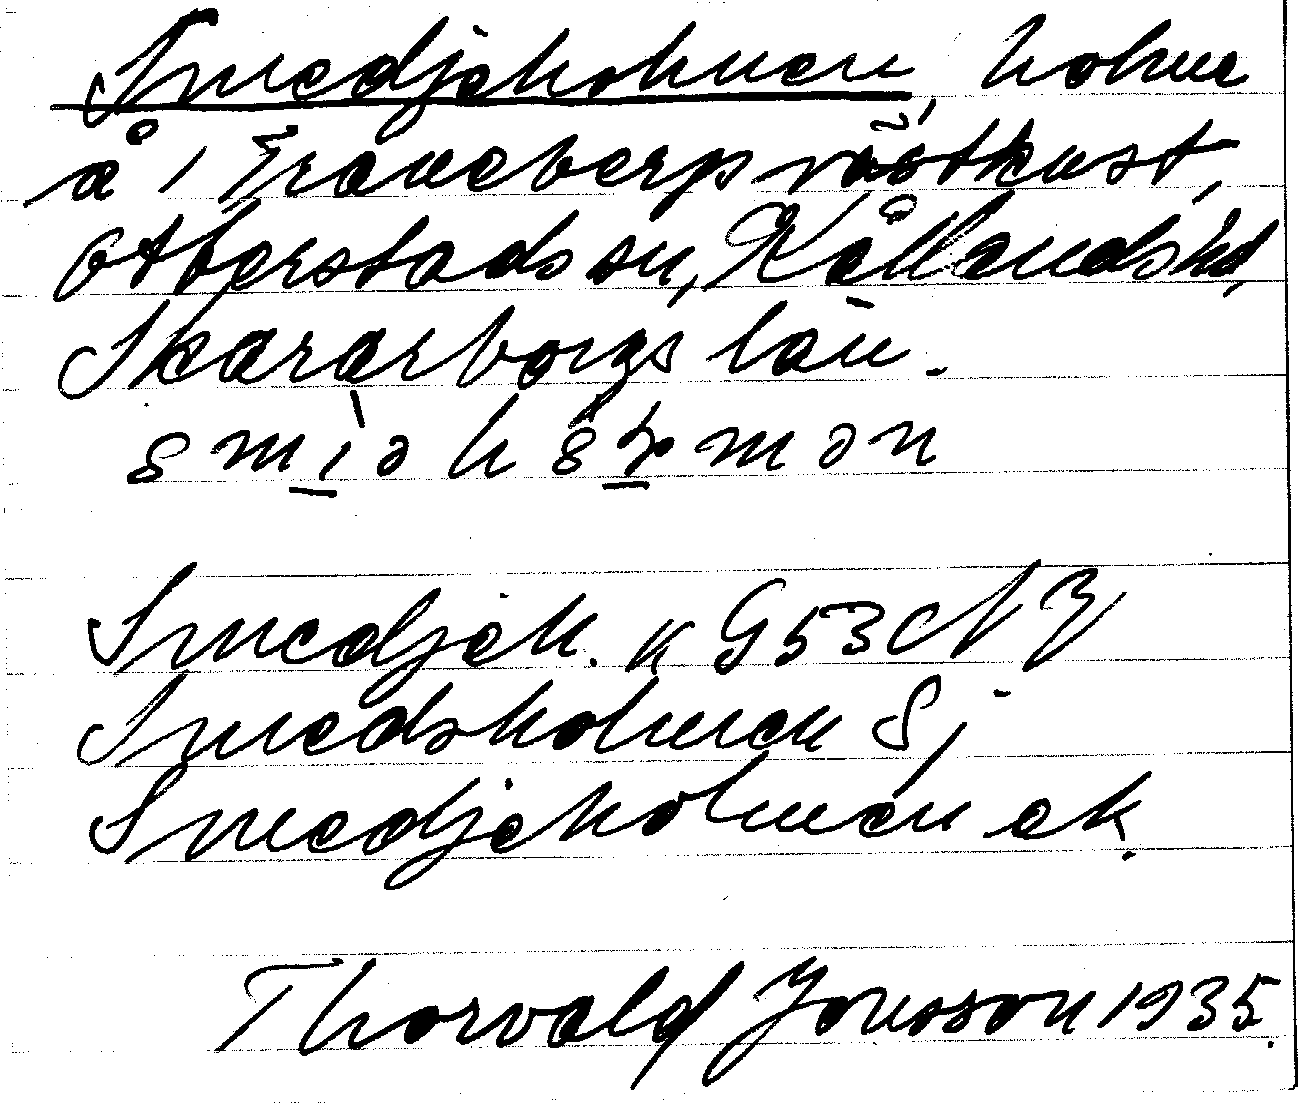 Smedjeholmen, holme
å 1 Traneberps västkust,
Otterstads sn, Kållands hd,
Skararborgs län.
Smedjeh. K G53 NV
Smedsholmen Sj
Smedjeholmen ek.
Thorvald Jonsson 1935.